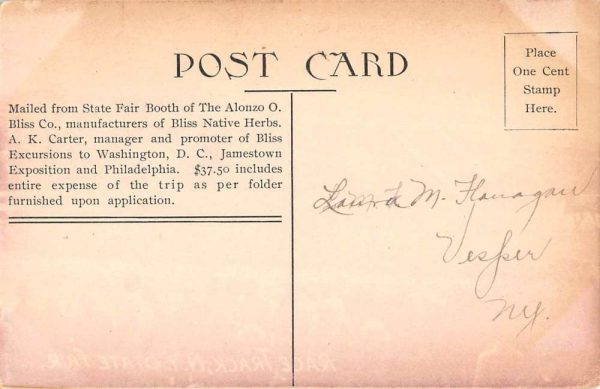 POST CARD
Place
One Cent
Stamp
Here.
Mailed from State Fair Booth of The Alonzo O.
Bliss Co., manufacturers of Bliss Native Herbs.
A. K. Carter, manager and promoter of Bliss
Excursions to Washington, D. C., Jamestown
Exposition and Philadelphia. $37.50 includes
entire expense of the trip as per folder
furnished upon application.
Laura M. Flanagan
Vesper
NY.